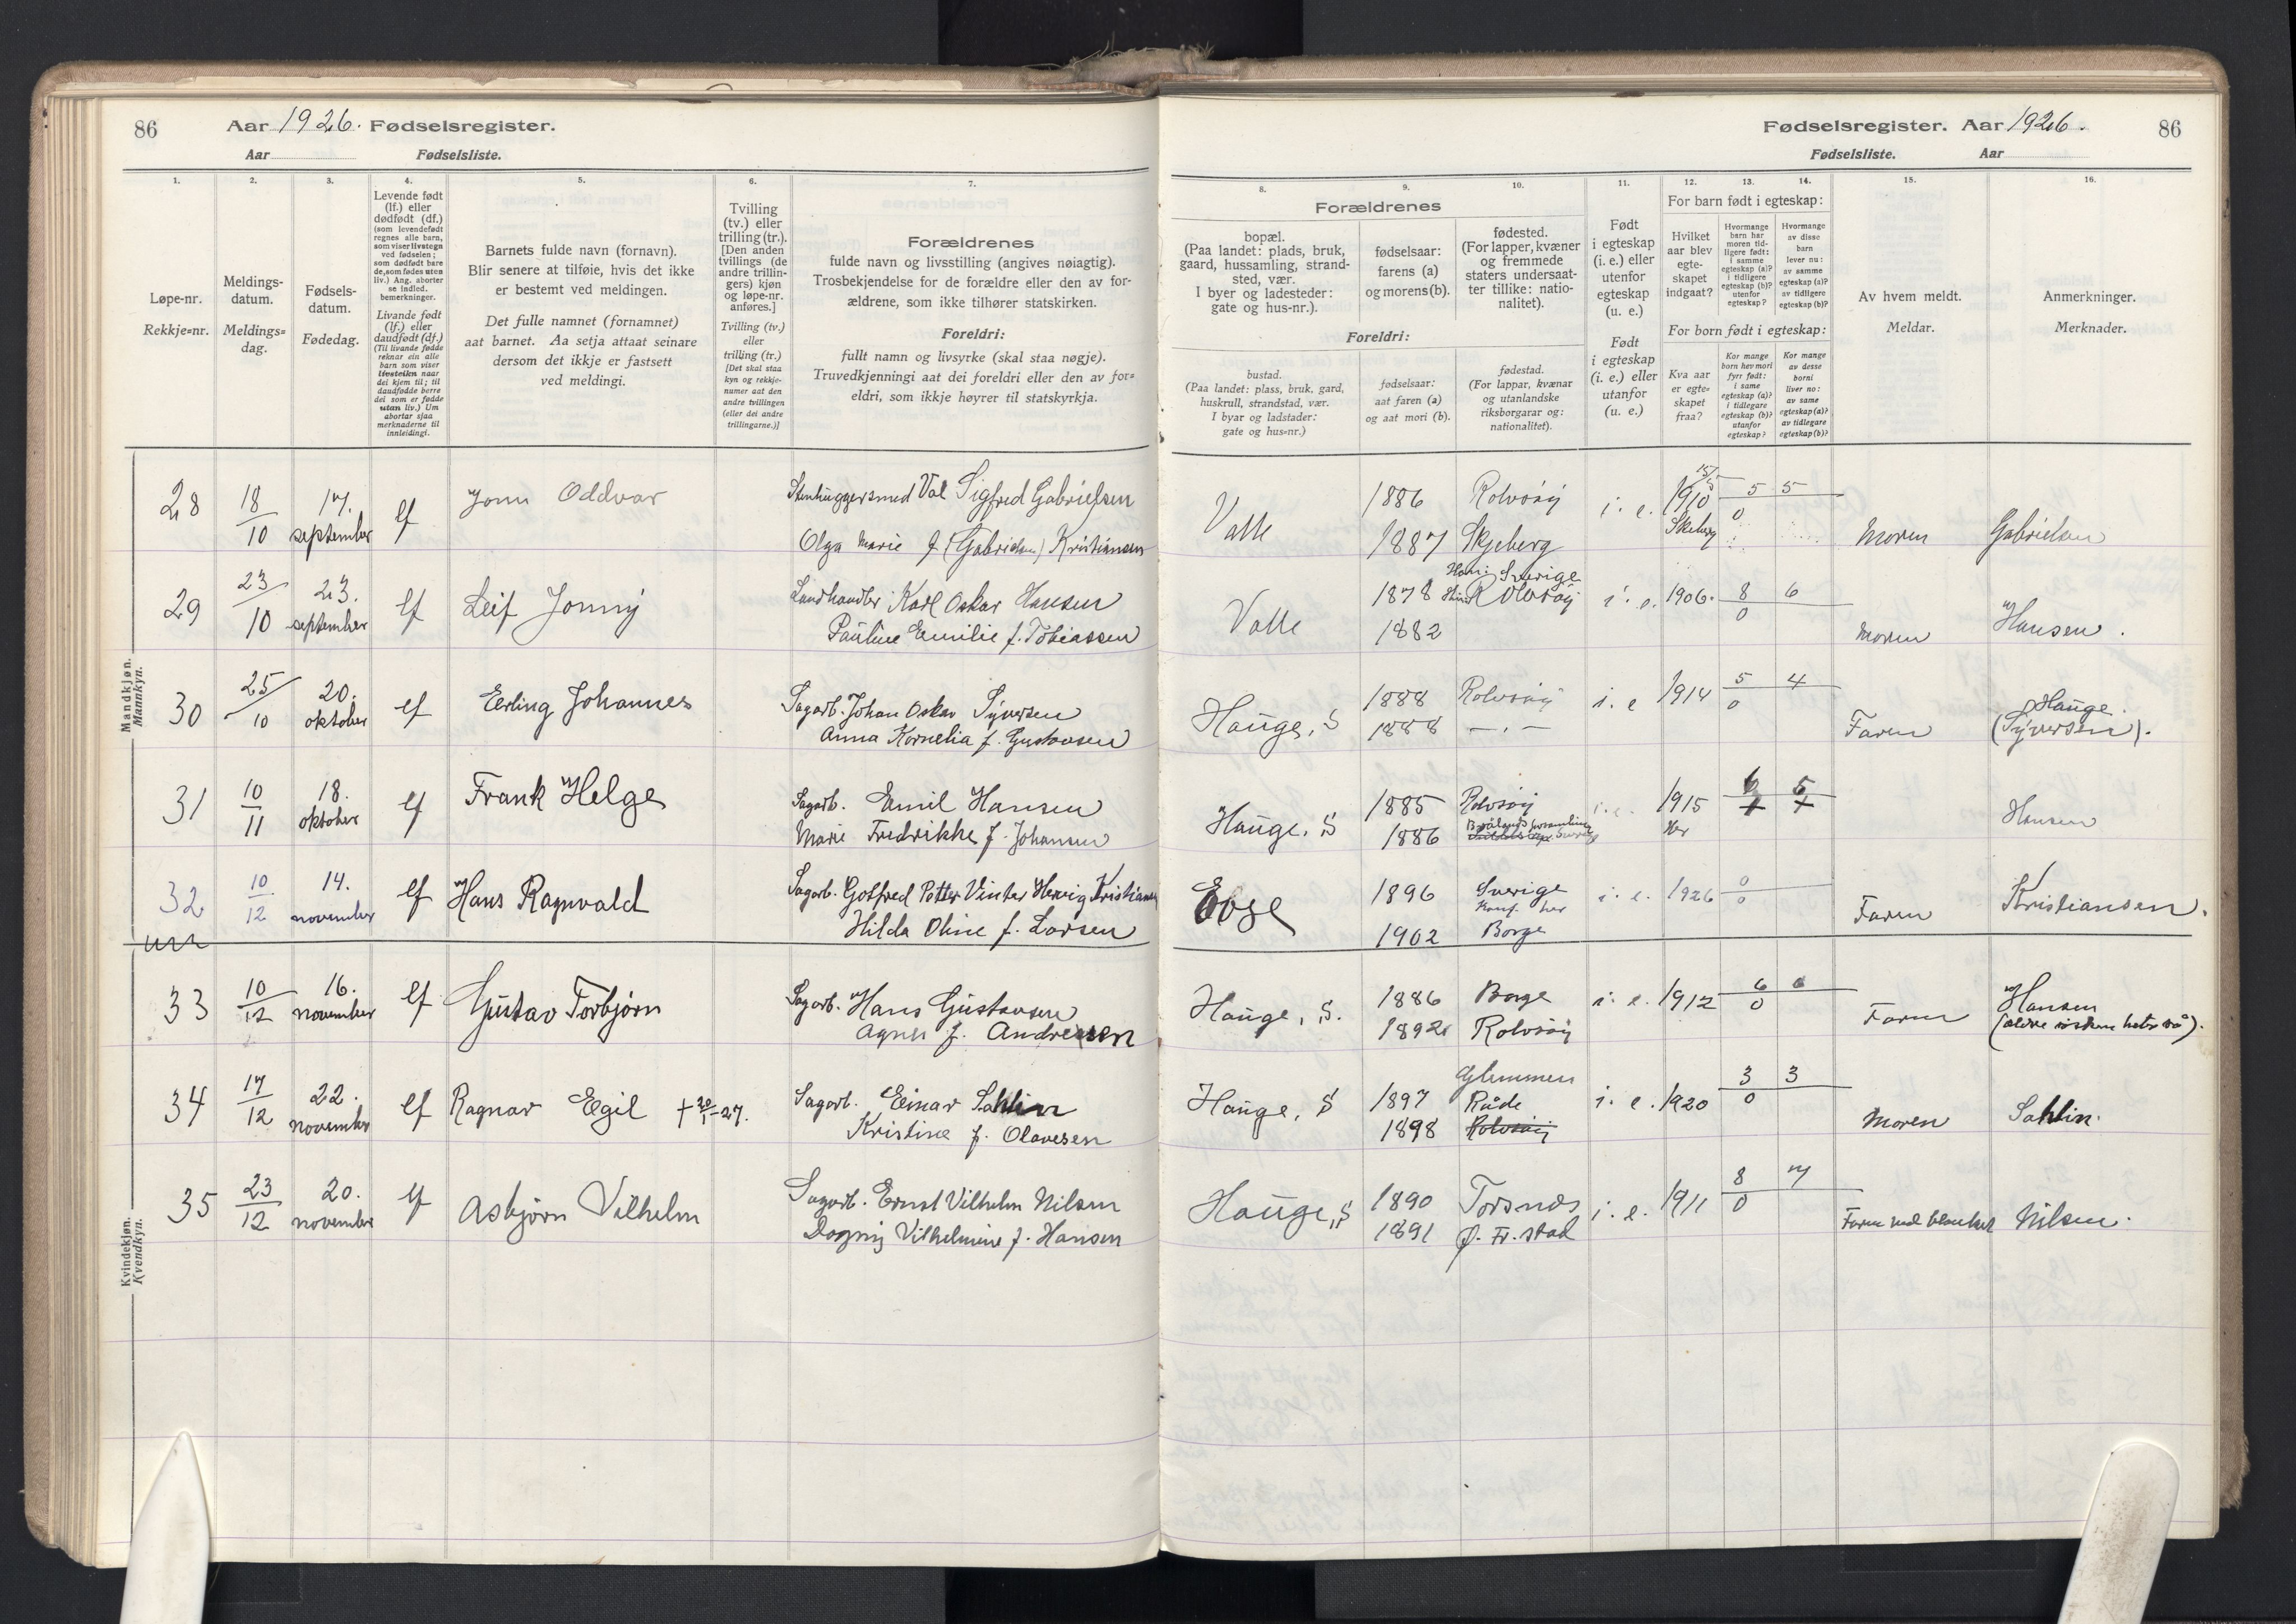 86
Aar 1926. Fødselsregister.
Aar Fødselsliste.
Fødselsregister. Aar 1926.
86
Fødselsliste. Aar
1.
Løpe-nr.
Rekkje=nr.
2.
Meldings-
datum.
Meldings=
dag.
3.
Fødsels-
datum.
Fødedag.
4.
Levende født
(lf.) eller
dødfødt (df.)
(som levendefødt
regnes alle barn,
som viser livstegn
ved fødselen;
som dødfødt bare
de, som fødes uten
liv.) Ang. aborter
se indled.
bemerkninger.
Livande født
(lf.) eller
daudfødt (df.)
(Til livande fødde
reknar ein alle
barn som viser
livsteikn naar
dei kjem til; til
daudfødde berre
dei som er fødde
utan liv.) Um
abortar sjaa
merknaderne til
innleidingi.
5.
Barnets fulde navn (fornavn).
Blir senere at tilføie, hvis det ikke
er bestemt ved meldingen.
Det fulle namnet (fornamnet)
aat barnet. Aa setja attaat seinare
dersom det ikkje er fastsett
ved meldingi.
6.
Tvilling
(tv.) eller
trilling (tr.).
[Den anden
tvillings (de
andre trillin-
gers) kjøn
og løpe-nr.
anføres.]
Tvilling (tv.)
eller
trilling (tr.)
[Det skal staa
kyn og rekkje-
numer aat den
andre tvillingen
(eller dei andre
trillingarne.)]
7.
Forældrenes
fulde navn og livsstilling (angives nøiagtig).
Trosbekjendelse for de forældre eller den av for-
ældrene, som ikke tilhører statskirken.
Foreldri:
fullt namn og livsyrke (skal staa nøgje).
Truvedkjenningi aat dei foreldri eller den av for=
eldri, som ikkje høyrer til statskyrkja.
8.
Forældrenes
bopæl.
(Paa landet: plads, bruk,
gaard, hussamling, strand-
sted, vær.
I byer og ladesteder:
gate og hus-nr.).
Foreldri:
bustad.
(Paa landet: plass, bruk, gard,
huskrull, strandstad, vær.
I byar og ladstader:
gate og hus=nr.)
9.
fødselsaar:
farens (a)
og morens (b).
fødselsaar:
aat faren (a)
og aat mori (b).
10.
fødested.
(For lapper, kvæner
og fremmede
staters undersaat-
ter tillike: natio-
nalitet).
fødestad.
(For lappar, kvænar
og utanlandske
riksborgarar og:
nationalitet).
11.
Født
i egteskap
(i. e.) eller
utenfor
egteskap
(u. e.)
Født
i egteskap
(i. e.) eller
utanfor
(u. e.)
12.
13.
14.
For barn født i egteskap:
Hvilket
aar blev
egte-
skapet
indgaat?
Hvormange
barn har
moren tid-
ligere født:
i samme
egteskap (a)?
i tidligere
egteskap (b)?
utenfor
egteskap?
Hvormange
av disse
barn
lever nu:
av samme
egteskap (a)?
av tidligere
egteskap (b)?
For born født i egteskap:
Kva aar
er egte=
skapet
fraa?
Kor mange
born hev mori
fyrr født:
i same
egteskap (a)?
i tidlegare
egteskap (b)?
utanfor
egteskap?
Kor mange
av desse
borni
liver no:
av same
egteskap (a)?
av tidlegare
egteskap (b)?
15.
Av hvem meldt.
Meldar.
16.
Anmerkninger.
Merknader.
Mandkjøn.
Mannkyn.
28 18/10 17. september lf Jonn Oddvar Stenhuggersmed Val Sigfred Gabrielsen
Olga Marie f. (Gabrielsen) Kristiansen
Valle 1886 Rolvsøy i. e. 15/5 1910 5 5
1887 Skjeberg Skeberg 0 Moren Gabrielsen
29 23/10 23. september lf Leif Jonny Landhandler Karl Oskar Hansen
Pauline Emilie f. Tobiassen
Valle 1878 Han: Sverige Hun: Rolvsøy i. e. 1906. 8 6
1882 0 Moren Hansen.
30 25/10 20. oktober lf Erling Johannes Sagarb. Johan Oskar Syversen
Anna Kornelia f. Gustavsen
Hauge, S 1888 Rolvsøy i. e 1914 5 4
1888 — . — 0 Faren Hauge (Syversen).
31 10/11 18. oktober lf Frank Helge Sagarb. Emil Hansen
Marie Fredrikke f. Johansen
Hauge, S 1885 Rolvsøy i. e. 1915 6 5
1886 her Hansen
32 10/12 14. november lf Hans Ragnvald Sagarb. Gotfred Petter Vinter Hervig Kristiansen
Hilda Oline f. Larsen
Evje 1896 Sverige Konf. her i. e. 1926 0
1902 Borge 0 Faren Kristiansen.
33 10/12 16. november lf Gustav Torbjørn Sagarb. Hans Gustavsen
Agnes f. Andresen
Hauge, S. 1886 Borge i. e. 1912 6 6
1892 Rolvsøy 0 Faren Hansen
(ældre søsken heter så).
34 17/12 22. november lf Ragnar Egil + 20/1-27. Sagarb. Einar Sahlin
Kristine f. Olavesen
Hauge, S 1897 Glemmen i. e. 1920 3 3
Råde 0
1898 Rolvsøy Moren Sahlin.
Kvindekjøn.
Kvendkyn.
35 23/12 20. november lf Asbjørn Vilhelm Sagarb. Ernst Vilhelm Nilsen
Dagny Vilhelmine f. Hansen
Hauge, S 1890 Torsnes i. e. 1911 8 7
1891 Ø. Fr.stad 0 Faren ved blanket Nilsen.